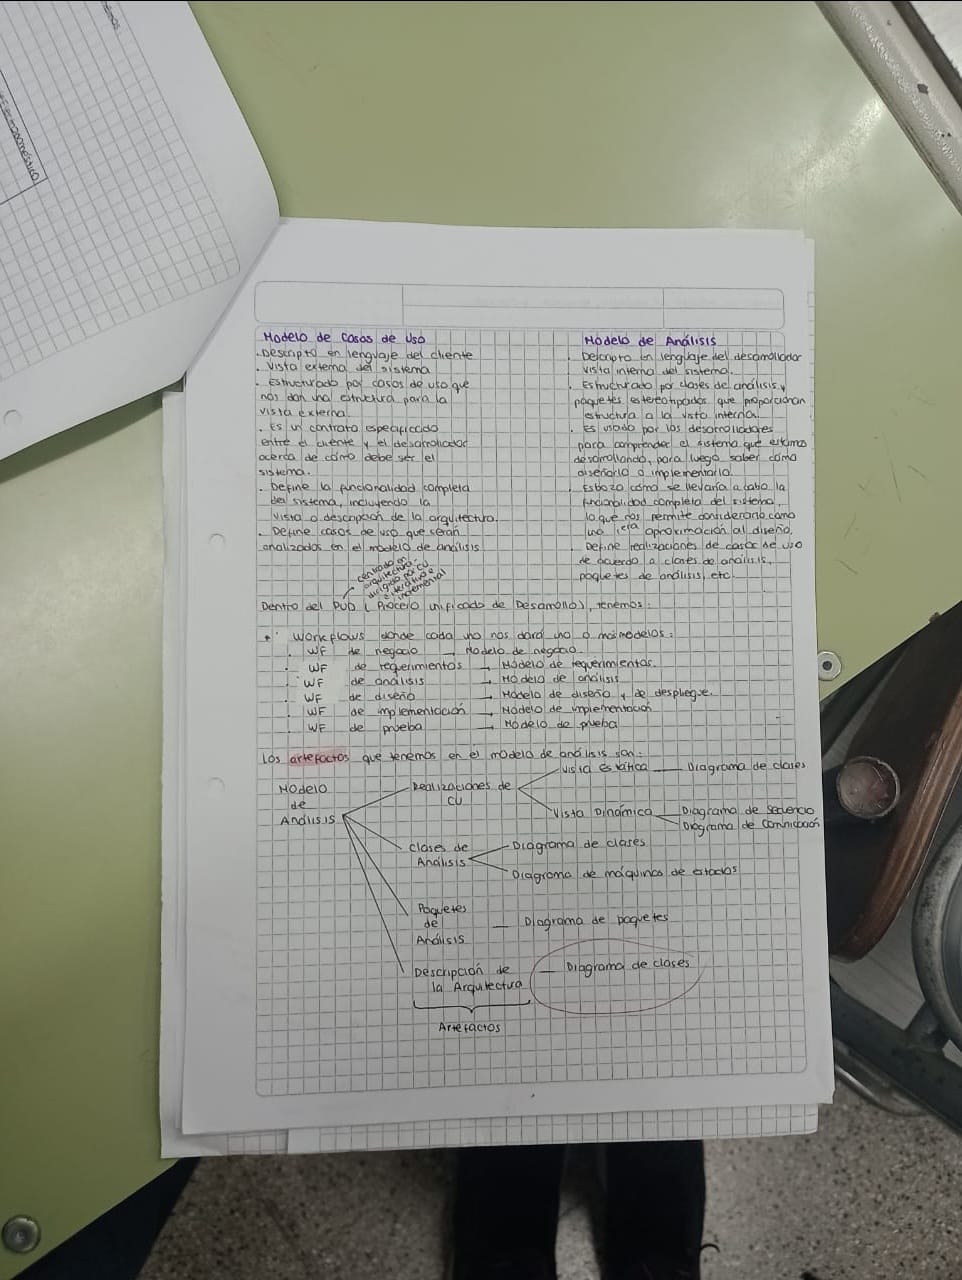 Modelo de Casos de Uso
. Descripto en lenguaje del cliente
. Vista externa del sistema
. Estructurado por casos de uso que
nos dan una estructura para la
vista externa.
. Es un contrato especificado
entre el cliente y el desarrollador
acerca de cómo debe ser el
sistema.
. Define la funcionalidad completa
del sistema, incluyendo la
vista o descripción de la arquitectura.
. Define casos de uso que serán
analizados en el modelo de análisis
Modelo de Análisis
. Descripto en lenguaje del desarrollador
. Vista interna del sistema.
. Estructurado por clases de análisis y
paquetes estereotipados que proporcionan
estructura a la vista interna.
. Es usado por los desarrolladores
para comprender el sistema que estamos
desarrollando, para luego saber cómo
diseñarlo o implementarlo.
. Esbozo cómo se llevaría a cabo la
funcionalidad completa del sistema,
lo que nos permite considerarlo como
una 1era aproximación al diseño.
. Define realizaciones de casos de uso
de acuerdo a clases de análisis,
paquetes de análisis, etc.
centrado en
arquitectura -
dirigido por CU
e iterativo e
incremental
Dentro del PUD (Proceso unificado de Desarrollo), tenemos:
Workflows donde cada uno nos dará uno o más modelos:
. WF de negocio → Modelo de negocio.
. WF de requerimientos → Modelo de requerimientos.
. WF de análisis → Modelo de análisis
. WF de diseño → Modelo de diseño y de despliegue.
. WF de implementación → Modelo de implementación
. WF de prueba → Modelo de prueba
Los artefactos que tenemos en el modelo de análisis son:
Modelo
de
Análisis
Realizaciones de
CU
Vista estática — Diagrama de clases
Vista Dinámica
Diagrama de secuencia
Diagrama de comunicación
Clases de
Análisis
Diagrama de clases
Diagrama de máquina de estados
Paquetes
de
Análisis
— Diagrama de paquetes
Descripción de
la Arquitectura
— Diagrama de clases
Artefactos